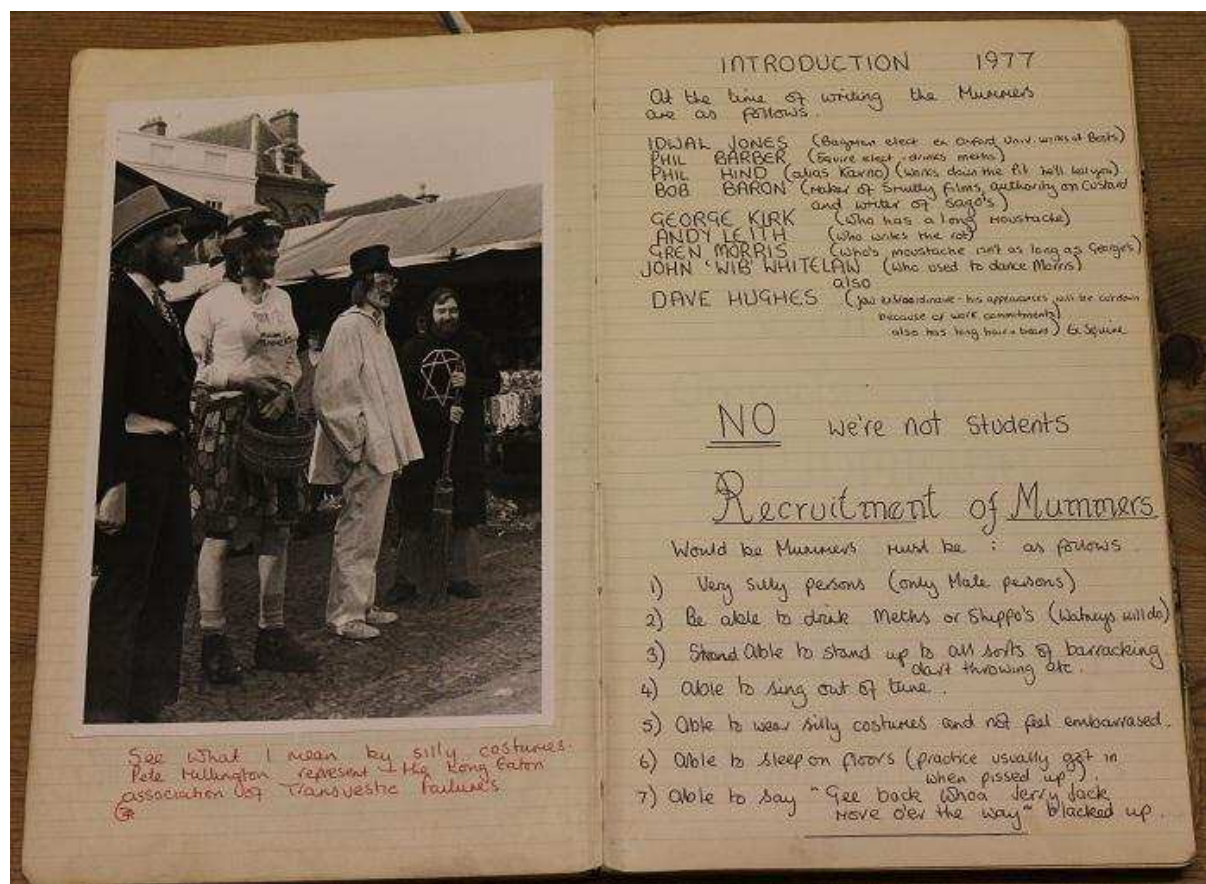 See what I mean by silly costumes.
Pete Millington represent the Long Eaton
association of Transvestic Failure's
INTRODUCTION 1977
At the time of writing the Mummers
are as follows.
IDWAL JONES (Bagman elect ex Oxford Univ. works at Boots)
PHIL BARBER (Squire elect - drinks meths)
PHIL HIND (alias Karno) (works down the Pit he'll tell you)
BOB BARON (Maker of Smutty films, authority on Custard
and writer of Sago's)
GEORGE KIRK (Who has a long Moustache)
ANDY LEITH (Who writes the rot)
GREN MORRIS (Who's moustache isn't as long as Georges)
JOHN 'WIB' WHITELAW (Who used to dance Morris)
also
DAVE HUGHES (extraordinaire - his appearances will be cut down
because of work commitments)
also has long hair + beard) Ex Squire
NO we're not students
Recruitment of Mummers
Would be Mummers must be : as follows
1) Very silly persons (only Male persons)
2) Be able to drink Meths or Shippo's (Watneys will do)
3) Stand Able to stand up to all sorts of barracking
dart throwing etc.
4) Able to sing out of tune.
5) Able to wear silly costumes and not feel embarrased.
6) Able to sleep on floors (practice usually got in
when pissed up).
7) Able to say "Gee back Whoa Jerry Jack
Move o'er the way" blacked up.